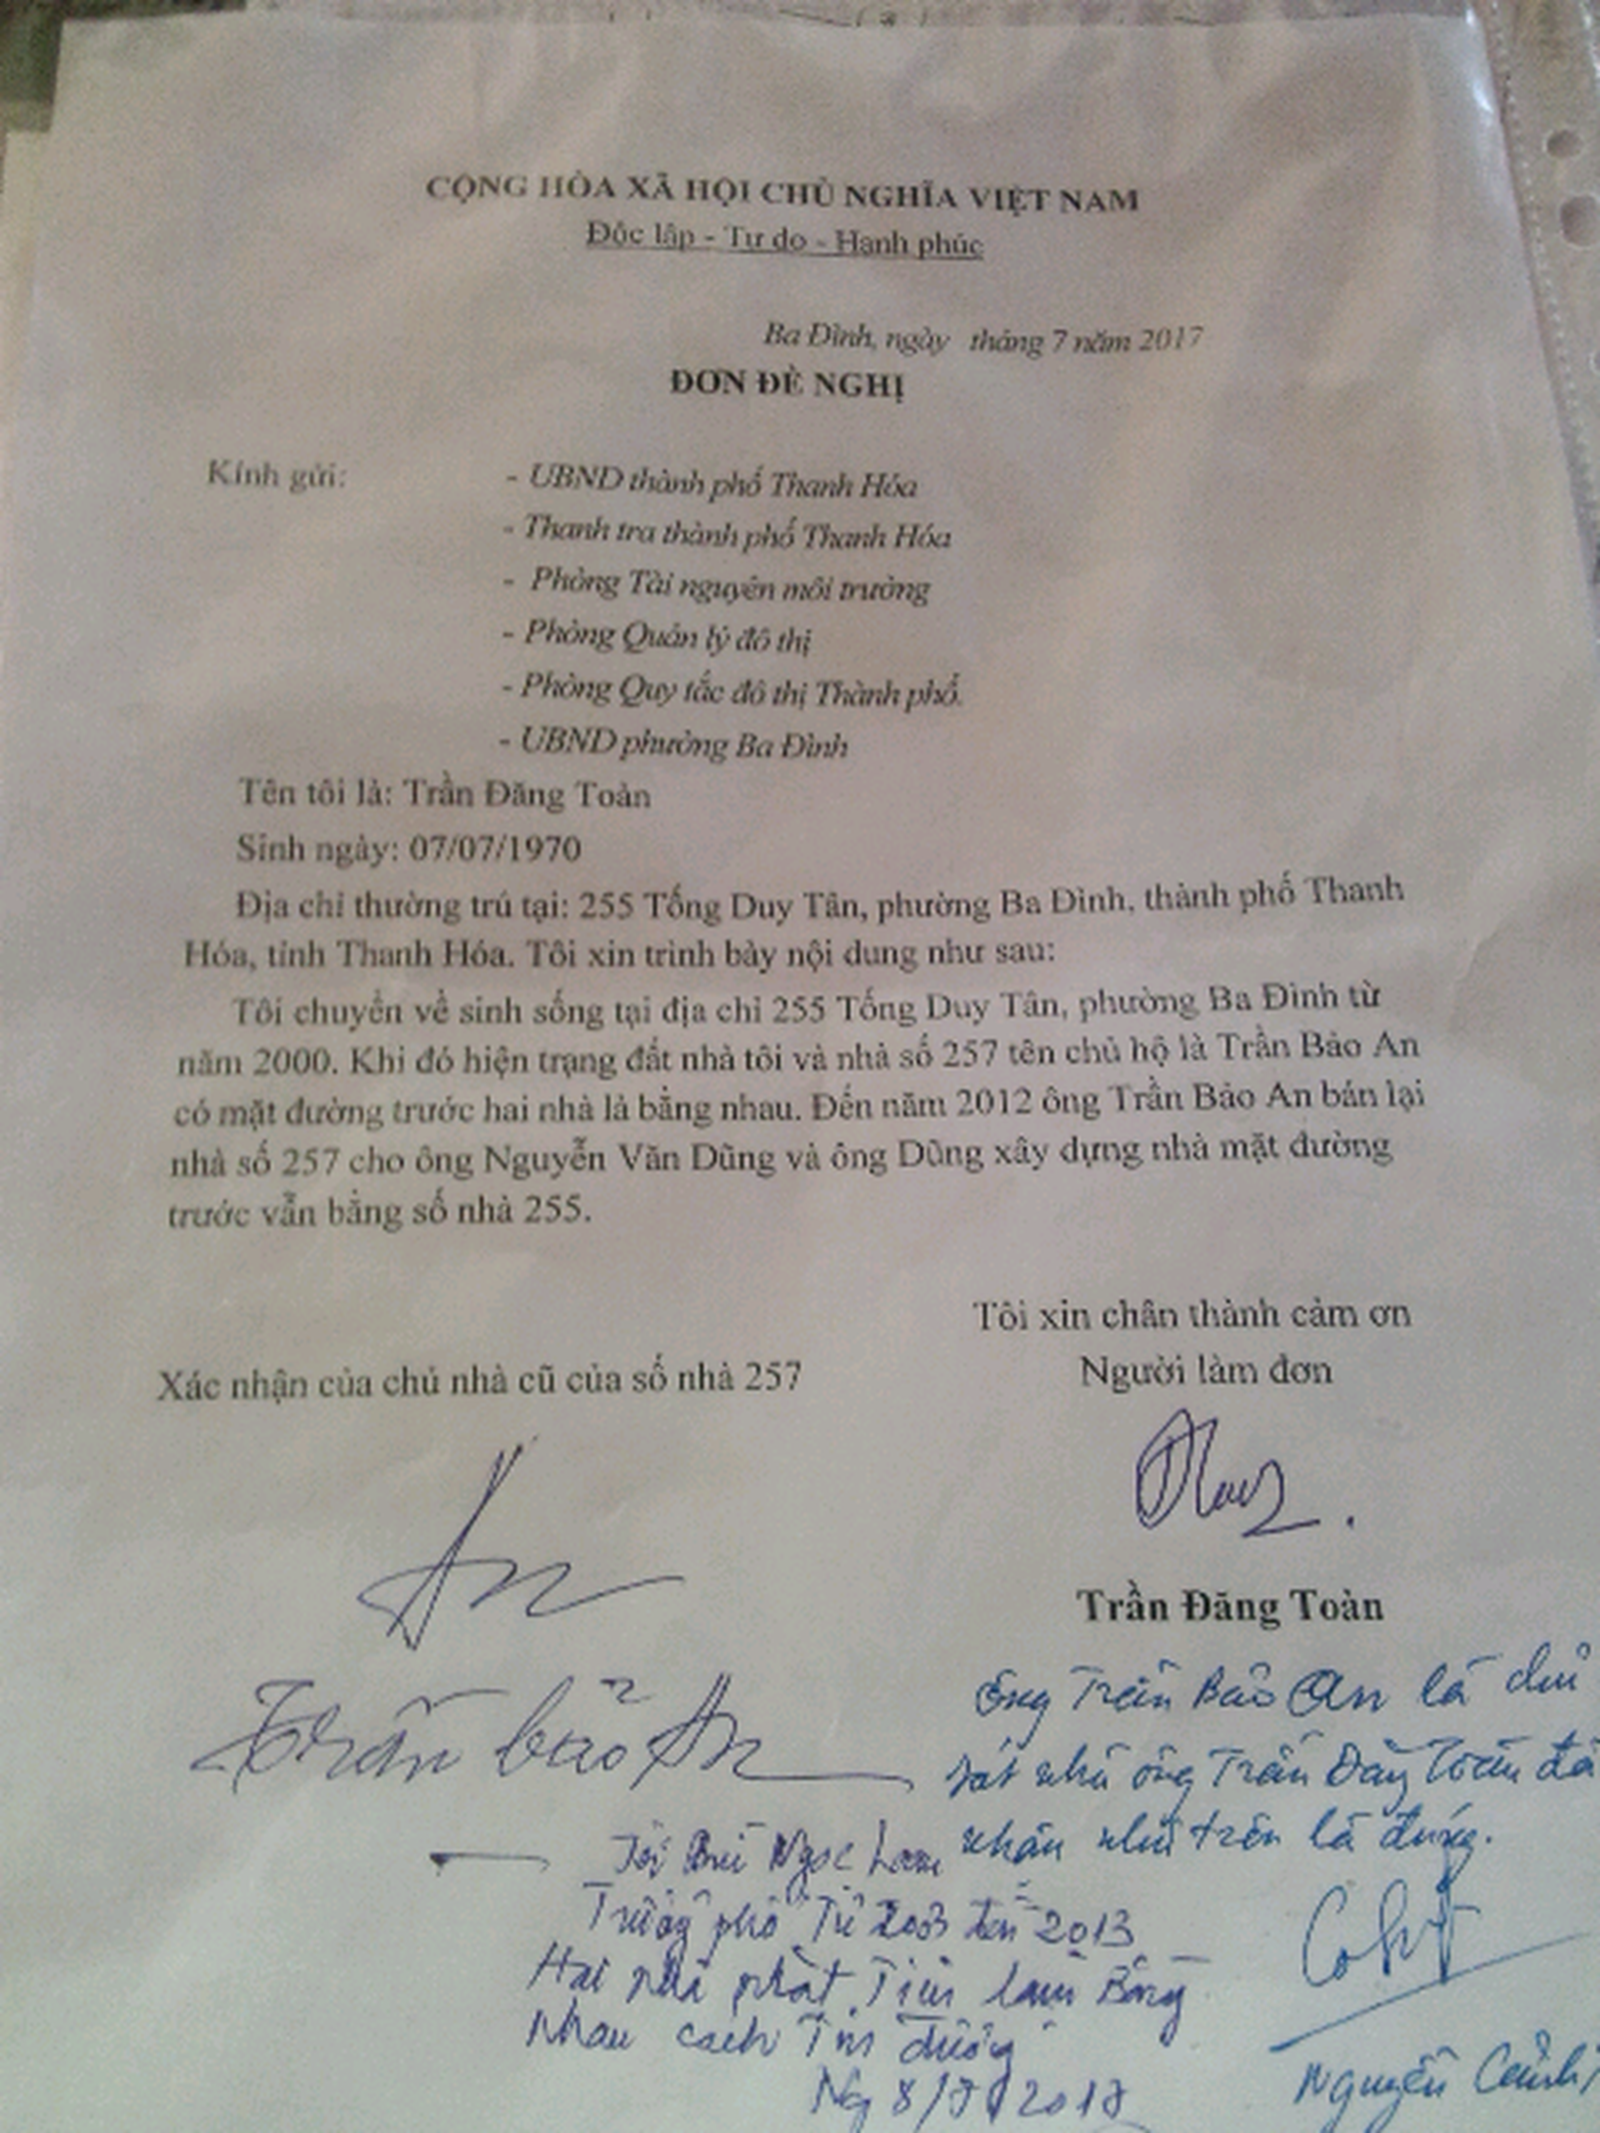 CỘNG HÒA XÃ HỘI CHỦ NGHĨA VIỆT NAM
Độc lập - Tự do - Hạnh phúc
Ba Đình, ngày tháng 7 năm 2017
ĐƠN ĐỀ NGHỊ
Kính gửi: - UBND thành phố Thanh Hóa
- Thanh tra thành phố Thanh Hóa
- Phòng Tài nguyên môi trường
- Phòng Quản lý đô thị
- Phòng Quy tắc đô thị Thành phố.
- UBND phường Ba Đình
Tên tôi là: Trần Đăng Toàn
Sinh ngày: 07/07/1970
Địa chỉ thường trú tại: 255 Tống Duy Tân, phường Ba Đình, thành phố Thanh
Hóa, tỉnh Thanh Hóa. Tôi xin trình bày nội dung như sau:
Tôi chuyển về sinh sống tại địa chỉ 255 Tống Duy Tân, phường Ba Đình từ
năm 2000. Khi đó hiện trạng đất nhà tôi và nhà số 257 tên chủ hộ là Trần Bảo An
có mặt đường trước hai nhà là bằng nhau. Đến năm 2012 ông Trần Bảo An bán lại
nhà số 257 cho ông Nguyễn Văn Dũng và ông Dũng xây dựng nhà mặt đường
trước vẫn bằng số nhà 255.
Tôi xin chân thành cảm ơn
Xác nhận của chủ nhà cũ của số nhà 257
Người làm đơn
An
Trần Đăng Toàn
Trần bảo An
ông Trần Bảo An là chủ
sát nhà ông Trần Đăng Toàn đã
nhận như trên là đúng.
Tôi Bùi Ngọc Lam
Trưởng phố Từ 2003 đến 2013
Hai nhà phát Tiến làm Bằng
Nhau cách Tim đường
Ng 8/7/2017
Nguyễn